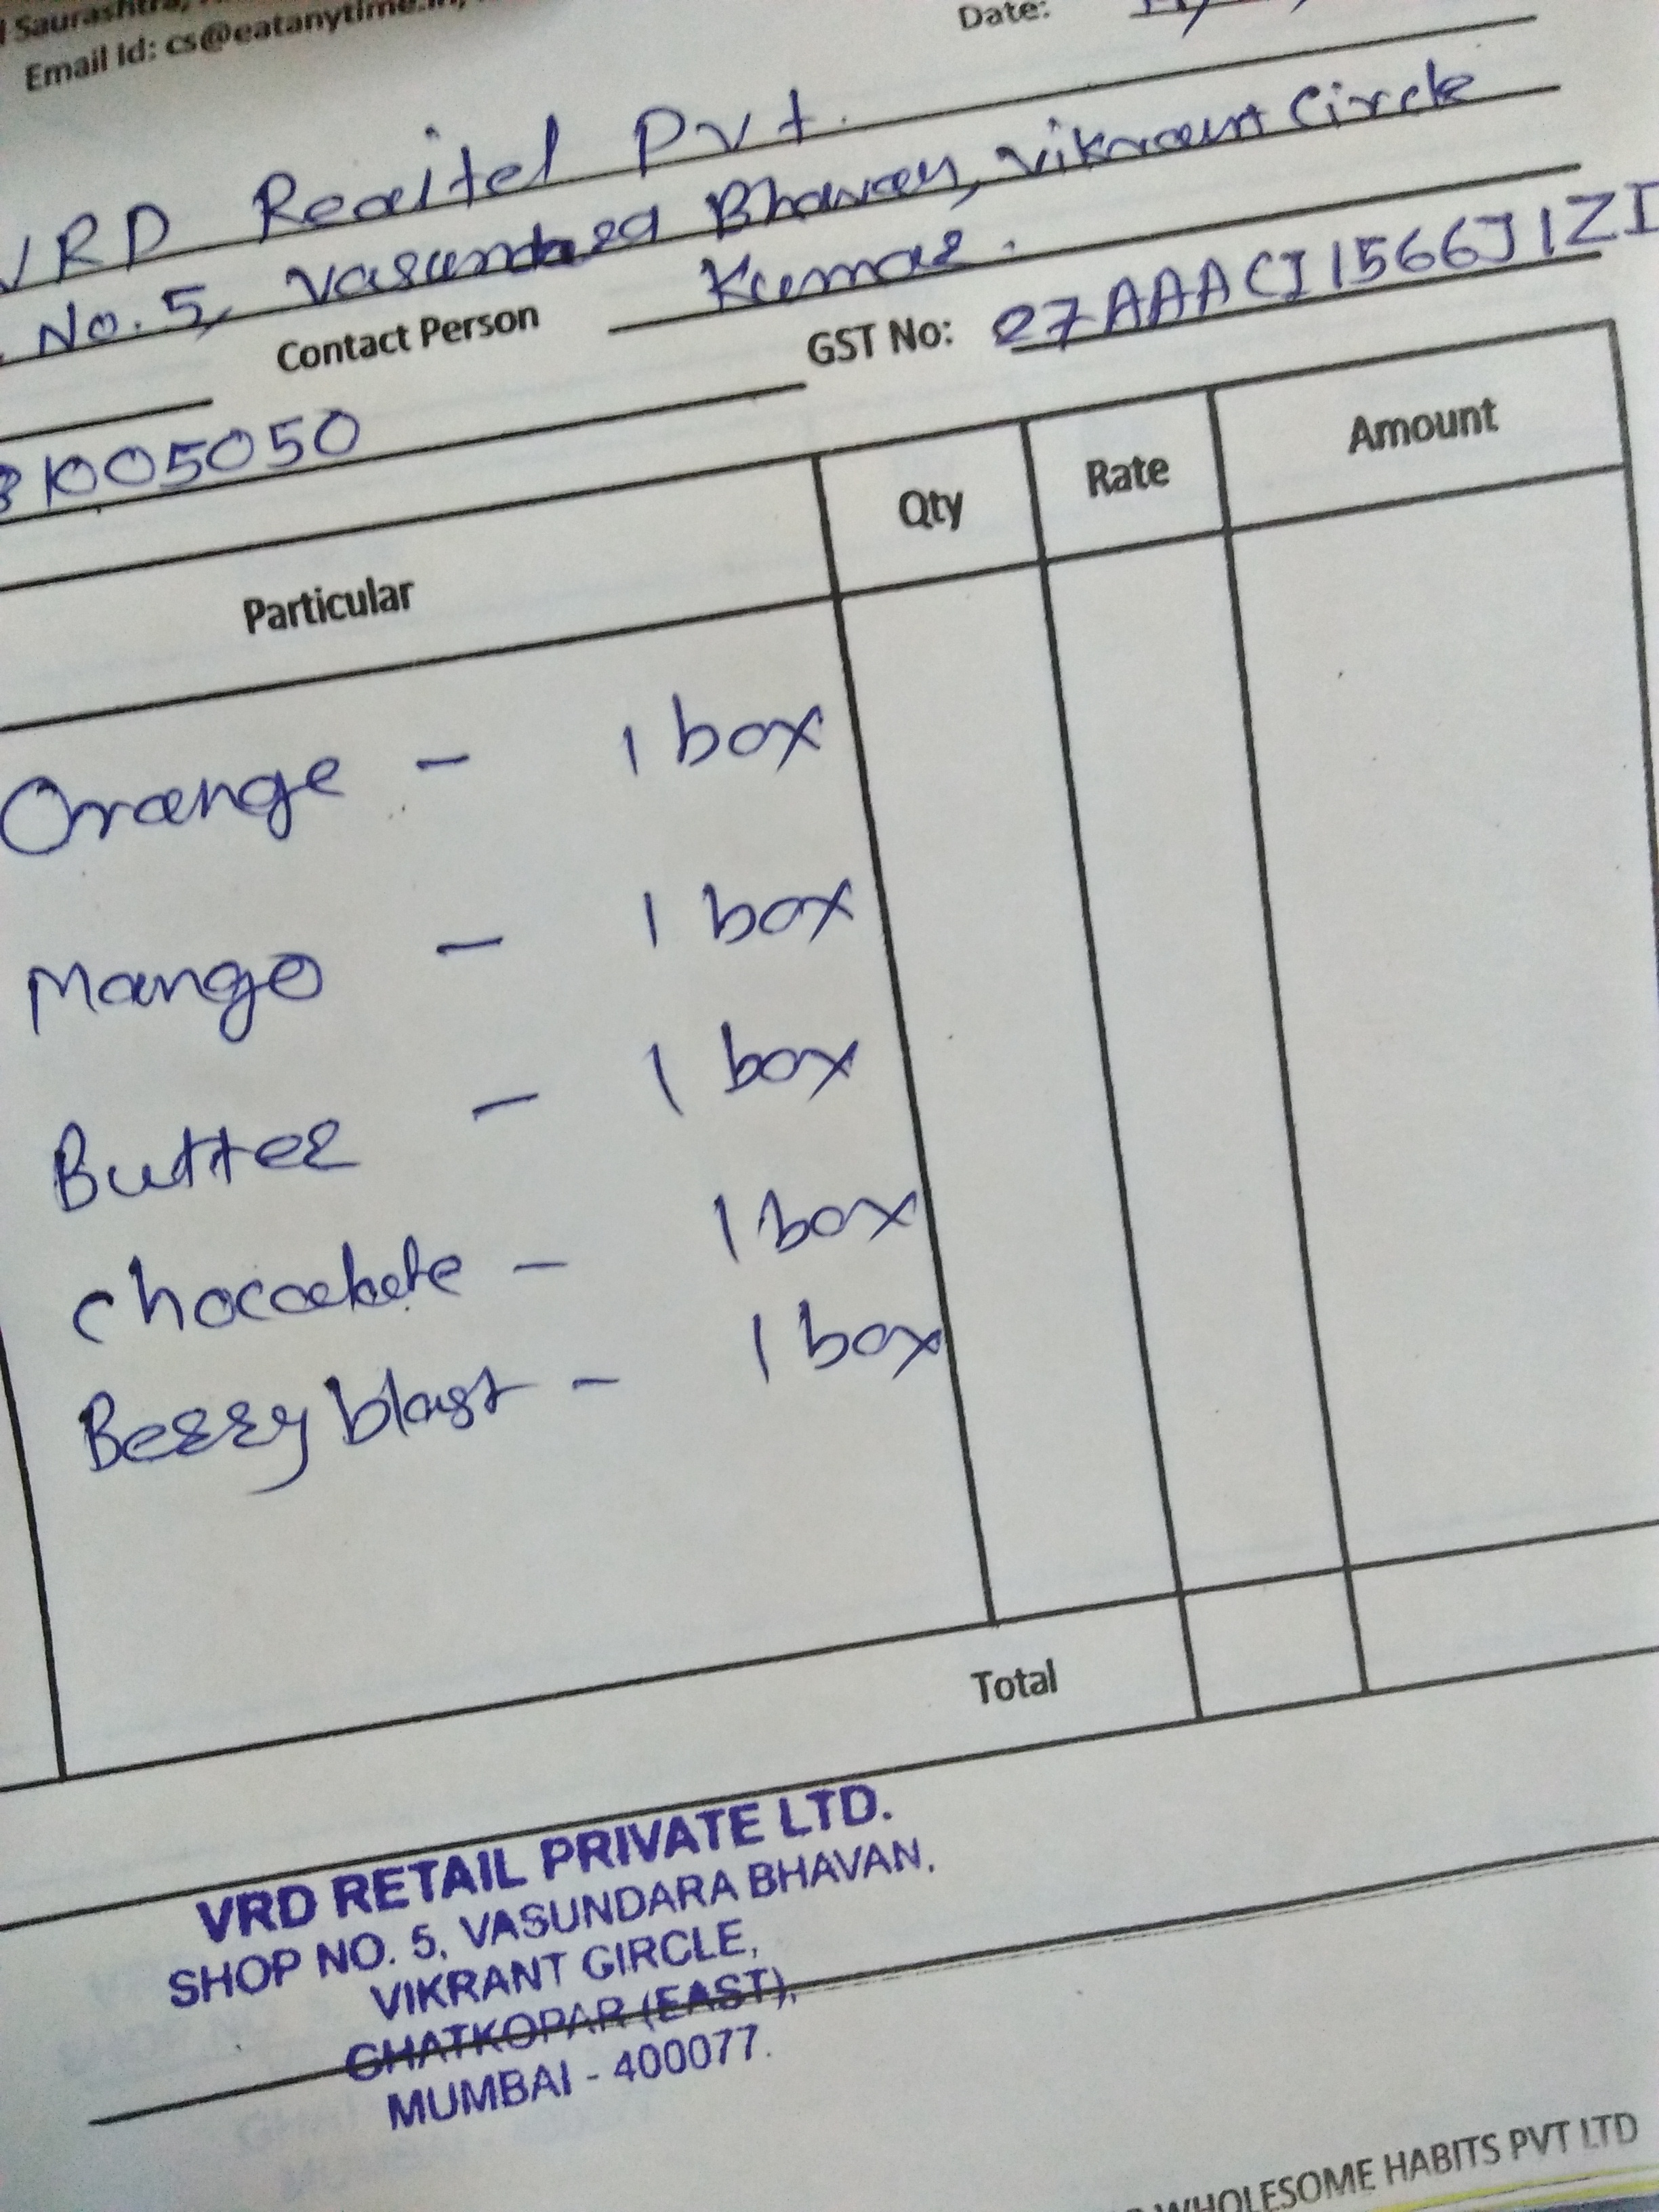 Saurashtra,
Email Id: cs@eatanytime.in,
Date:
VRD Reaitel Pvt.
No. 5, Vasundara Bhavan, Vikrant Circle
Contact Person Kumar.
GST No: 27AAACJ1566J1ZI
1005050
Particular Qty Rate Amount
Orange - 1 box
Mango - 1 box
Butter - 1 box
Chocolate - 1 box
Berry blast - 1 box
Total
VRD RETAIL PRIVATE LTD.
SHOP NO. 5, VASUNDARA BHAVAN,
VIKRANT CIRCLE,
GHATKOPAR (EAST),
MUMBAI - 400077.
WHOLESOME HABITS PVT LTD